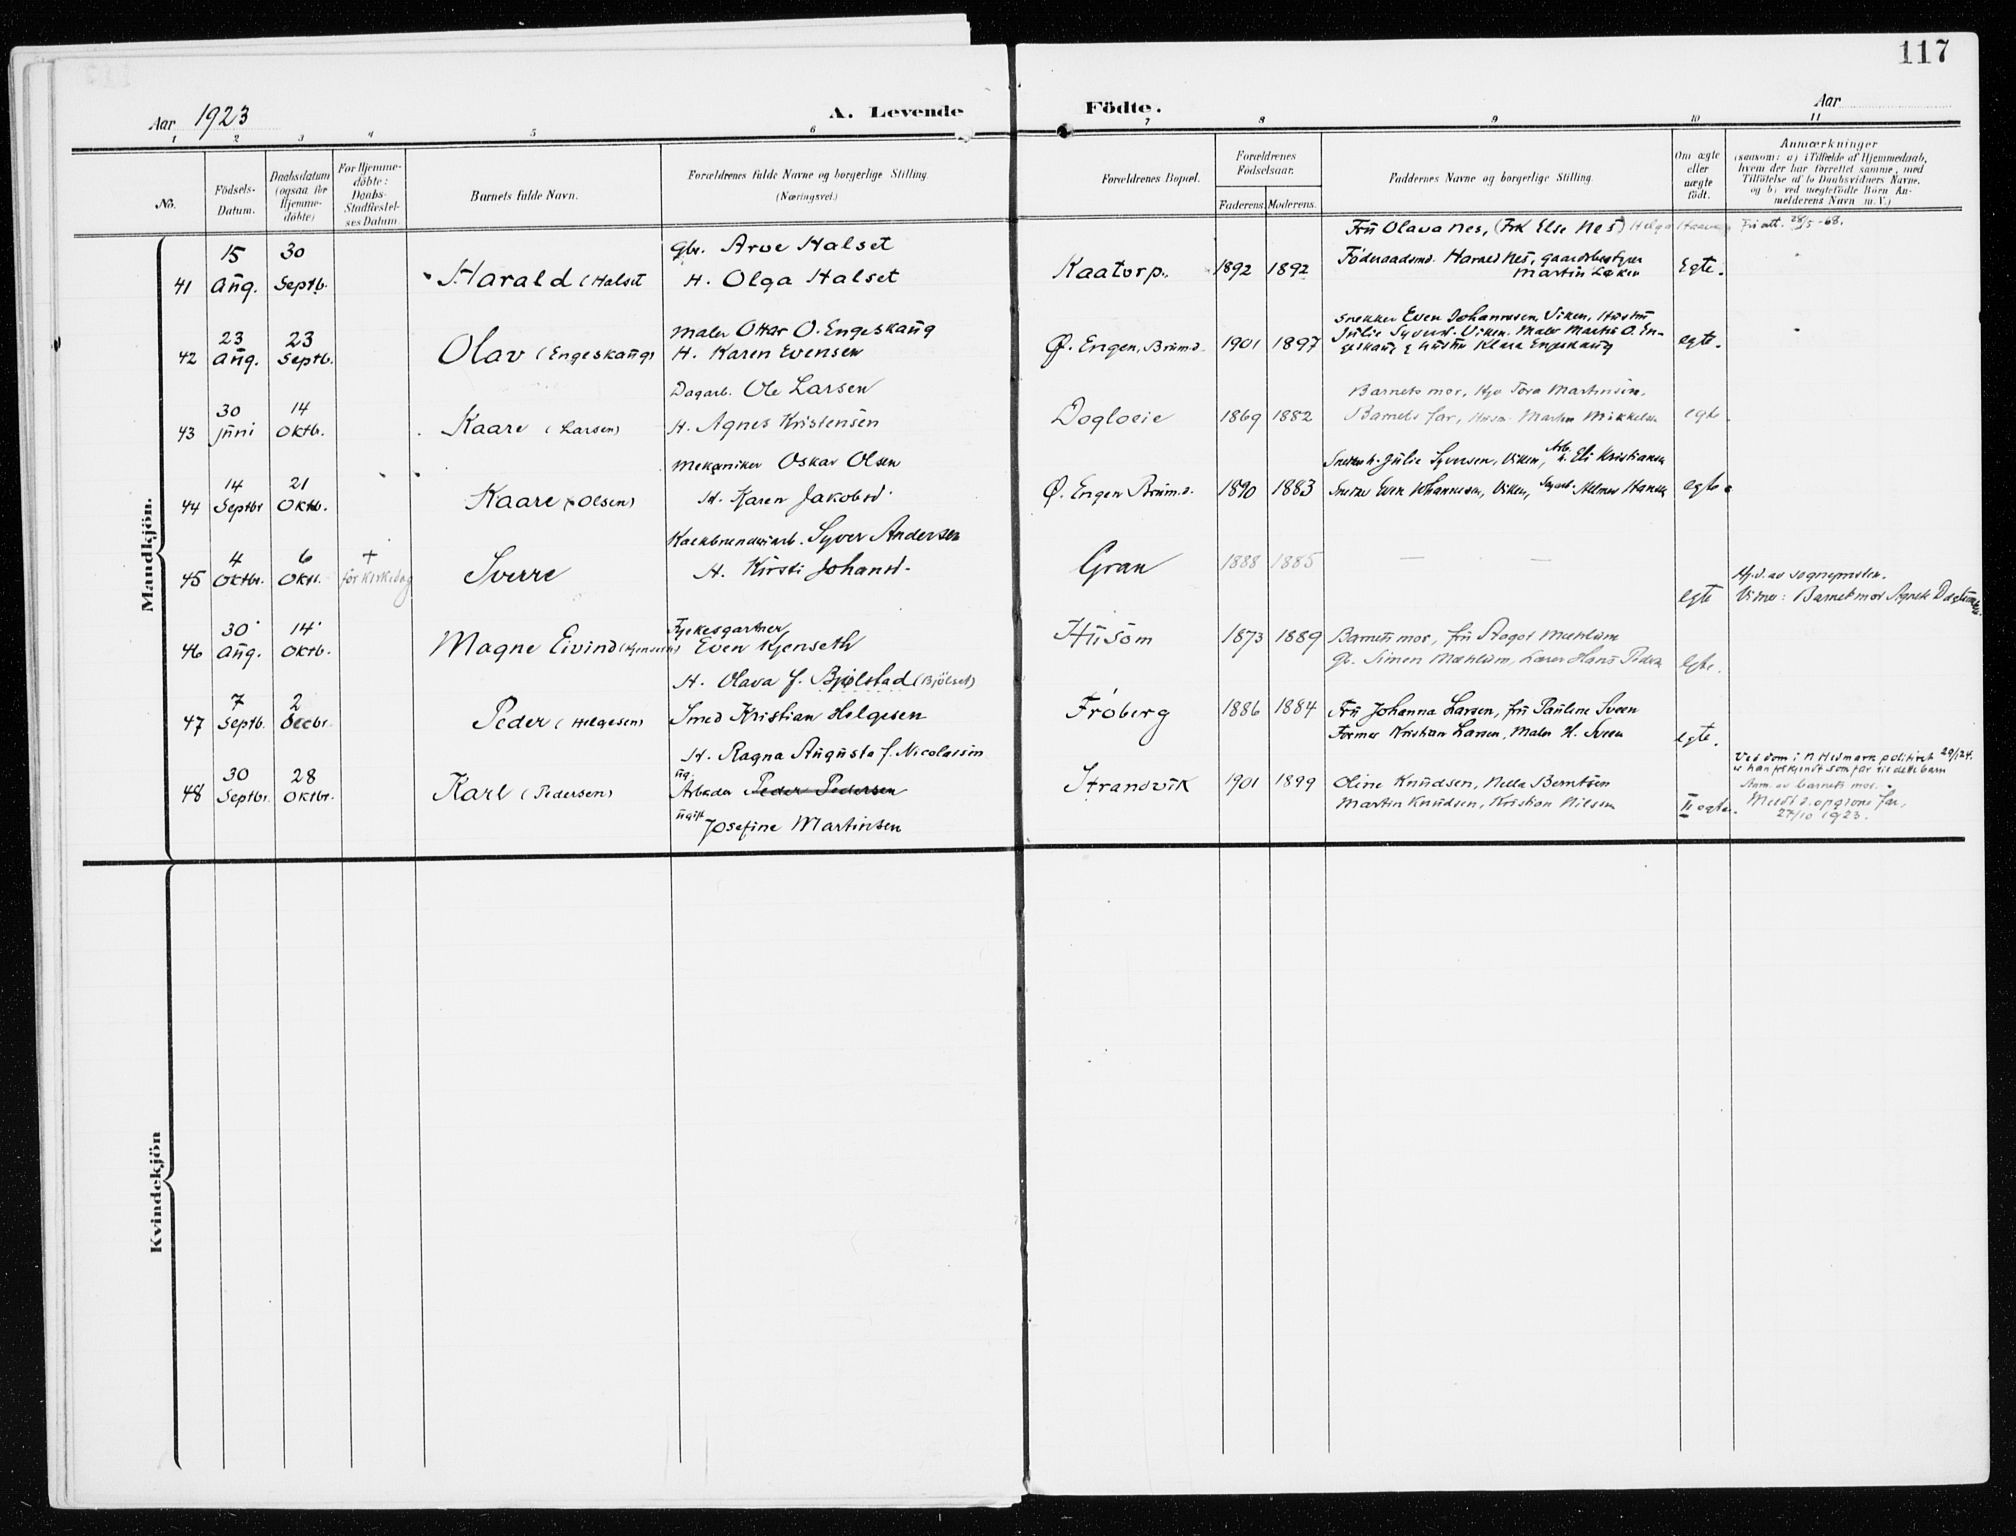 117
Aar 1923 A. Levende Födte. Aar
1 2 3 4 5 6 7 8 9 10 11
No. Födsels-Datum. Daabsdatum (ogsaa for Hjemmedöbte) For Hjemmedöbte: Daabs-Stadfæstelses Datum. Barnets fulde Navn. Forældrenes fulde Navne og borgerlige Stilling (Næringsvei.) Forældrenes Bopæl. Forældrenes Födselsaar. Faderens. Moderens. Faddernes Navne og borgerlige Stilling. Om ægte eller uægte födt. Anmærkninger (saasom: a) i Tilfælde af Hjemmedaab, hvem der har forrettet samme, med Tilföielse af to Daabsvidners Navne, og b) ved uægtefödte Börn Anmelderens Navn m.V.)
Mandkjön.
Fru Olava Nes, (Frk Else Nes) Helga Fri att. 28/5-68.
15 30 Gbr. Arve Halset Føderaadsmd. Harald Nes, gaardsbestyrer
41 Aug. Septb. Harald (Halset H. Olga Halset Kaatorp. 1892 1892 Martin Løken Egte.
23 23 Maler Ottar O. Engeskaug Snekker Even Johannesen, Viken, Hustru
Julie Syvers. Viken. Maler Martin O. En-
42 Aug. Septb. Olav (Engeskaug) H. Karen Evensen Ø. Engen, Brumd. 1901 1897 geskaug & hustru Klara Engeskaug egte.
30 14 Dagarb. Ole Larsen Barnets mor, Hjo Tora Martinsen.
43 juni Oktb. Kaare (Larsen) H. Agnes Kristensen Dogloeie 1869 1882 Barnets far, Martin Mikkelsen egte.
14 21 Mekaniker Oskar Olsen Snekker h. Julie Syversen, Viken, Arb. h. Eli Kristiansen
44 Septbr Oktb. Kaare (Olsen) H. Karen Jakobsd. Ø. Engen Brumd. 1890 1883 Snekker Even Johannesen, Viken, Helmer Hansen egte
4 6 + Kalkbrenderiarb. Syver Andersen
45 Oktbr. Okt. for kirkebog Sverre H. Kirsti Johansd. Gran 1888 1885 — — — egte Hj.d. av sognepresten.
Vidner: Barnets mor Agnete
30 14 Fylkesgartner
46 Aug. Oktb. Magne Eivind (Kjenseth) Even Kjenseth Husom 1873 1889 Barnets mor, fru Aagot Mæhlum
H. Olava f. Bjølstad (Bjölset) Gb. Simen Mæhlum, Lærer Hans Pedersen Egte.
7 2
47 Septb. Decbr. Peder (Helgesen) Smed Kristian Helgesen Frøberg 1886 1884 Fru Johanna Larsen, fru Pauline Sveen
H. Ragna Augusta f. Nicolaisen Former Kristian Larsen, Maler H. Sveen egte.
30 28 ug.
48 Septbr. Oktbr. Karl (Pedersen) Arbeder Peder Pedersen Strandvik 1901 1899 Oline Knudsen, Nella Berntsen
ugift Josefine Martinsen Martin Knudsen, Kristian Nilsen U egte.
Ved dom i N. Hedmark politiret 29/1 24.
er han frikjendt som far til dette barn
Anm. av barnets mor.
Meldt d. opgivne far,
27/10 1923.
Kvindekjön